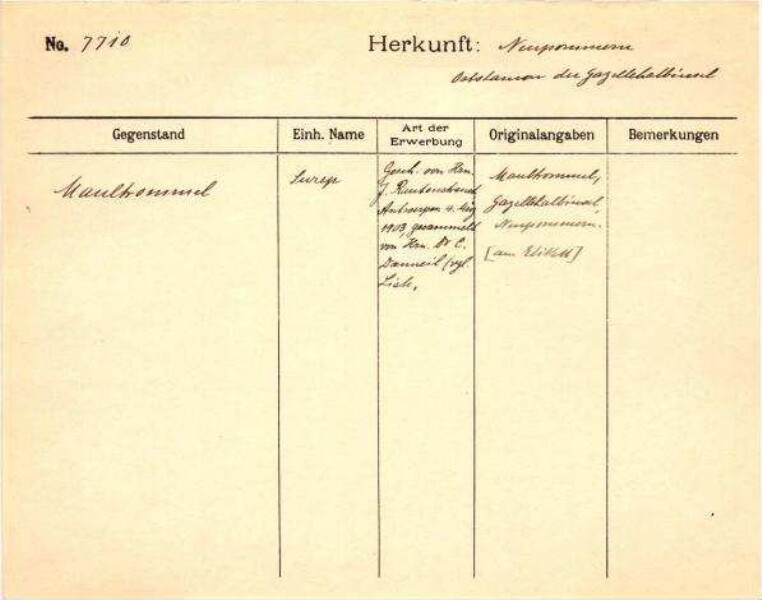 No. 7710
Herkunft: Neupommern
der Gazellehalbinsel
Gegenstand
Einh. Name
Art der
Erwerbung
Originalangaben
Bemerkungen
Maultrommel
Gesch. von Hrn.
J. Rautenstrauch
Antwerpen 4. Mai
1903, gesammelt
von Hrn. Dr C.
Danneil (vgl.
Liste.
Maultrommel,
Gazellehalbinsel,
Neupommern.
[am Etikett]